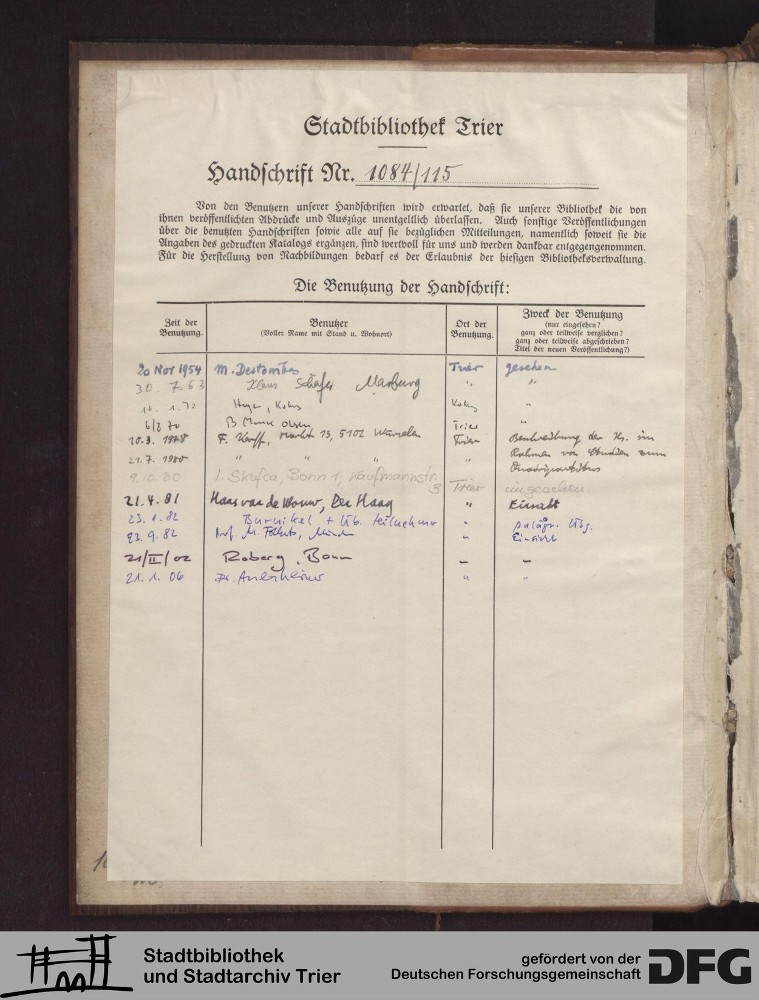 Stadtbibliothek Trier
Handschrift Nr. 1084/115
Von den Benutzern unserer Handschriften wird erwartet, daß sie unserer Bibliothek die von
ihnen veröffentlichten Abdrücke und Auszüge unentgeltlich überlassen. Auch sonstige Veröffentlichungen
über die benutzten Handschriften sowie alle auf sie bezüglichen Mitteilungen, namentlich soweit sie die
Angaben des gedruckten Katalogs ergänzen, sind wertvoll für uns und werden dankbar entgegengenommen.
Für die Herstellung von Nachbildungen bedarf es der Erlaubnis der hiesigen Bibliotheksverwaltung.
Die Benutzung der Handschrift:
Zeit der Benutzung.
Benutzer
(Voller Name mit Stand u. Wohnort)
Ort der Benutzung.
Zweck der Benutzung
(nur eingesehen?
ganz oder teilweise verglichen?
ganz oder teilweise abgeschrieben?
Titel der neuen Veröffentlichung?)
20 Nov 1954 M. Destombes Trier gesehen
30. 7. 63 Klaus Schäfer Marburg " "
Köln "
6/8 70 B. Munk Olsen Trier "
10.3. 1978 F. Markt 15, 5102 Würselen Trier Beschreibung der Hs. im
21.7. 1980 " " " " Rahmen von Studien zum
9.10.80 Bonn 1, Kaufmannstr. 3 Trier eingesehen
21.4.81 Den Haag " Einsicht
23.1.82 Burnikel + Üb. teilnehmer " paläogr. Übg.
23.9.82 Prof. M. " Einsicht
21/II/02 Roberg, Bonn " "
21.1.06 Dr. " "
Stadtbibliothek
und Stadtarchiv Trier
gefördert von der
Deutschen Forschungsgemeinschaft
DFG